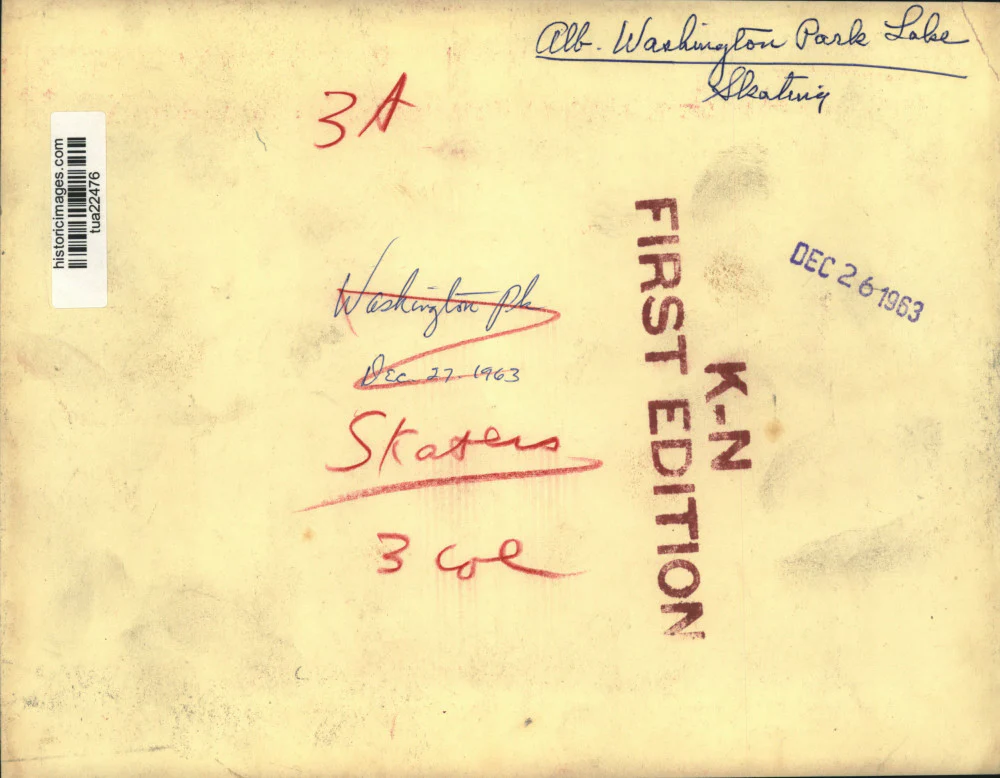 Alb. Washington Park Lake
Skating
3A
historicimages.com
tua22476
DEC 26 1963
Washington Pk
Dec 27 1963
Skaters
3 Col
FIRST EDITION
K-N